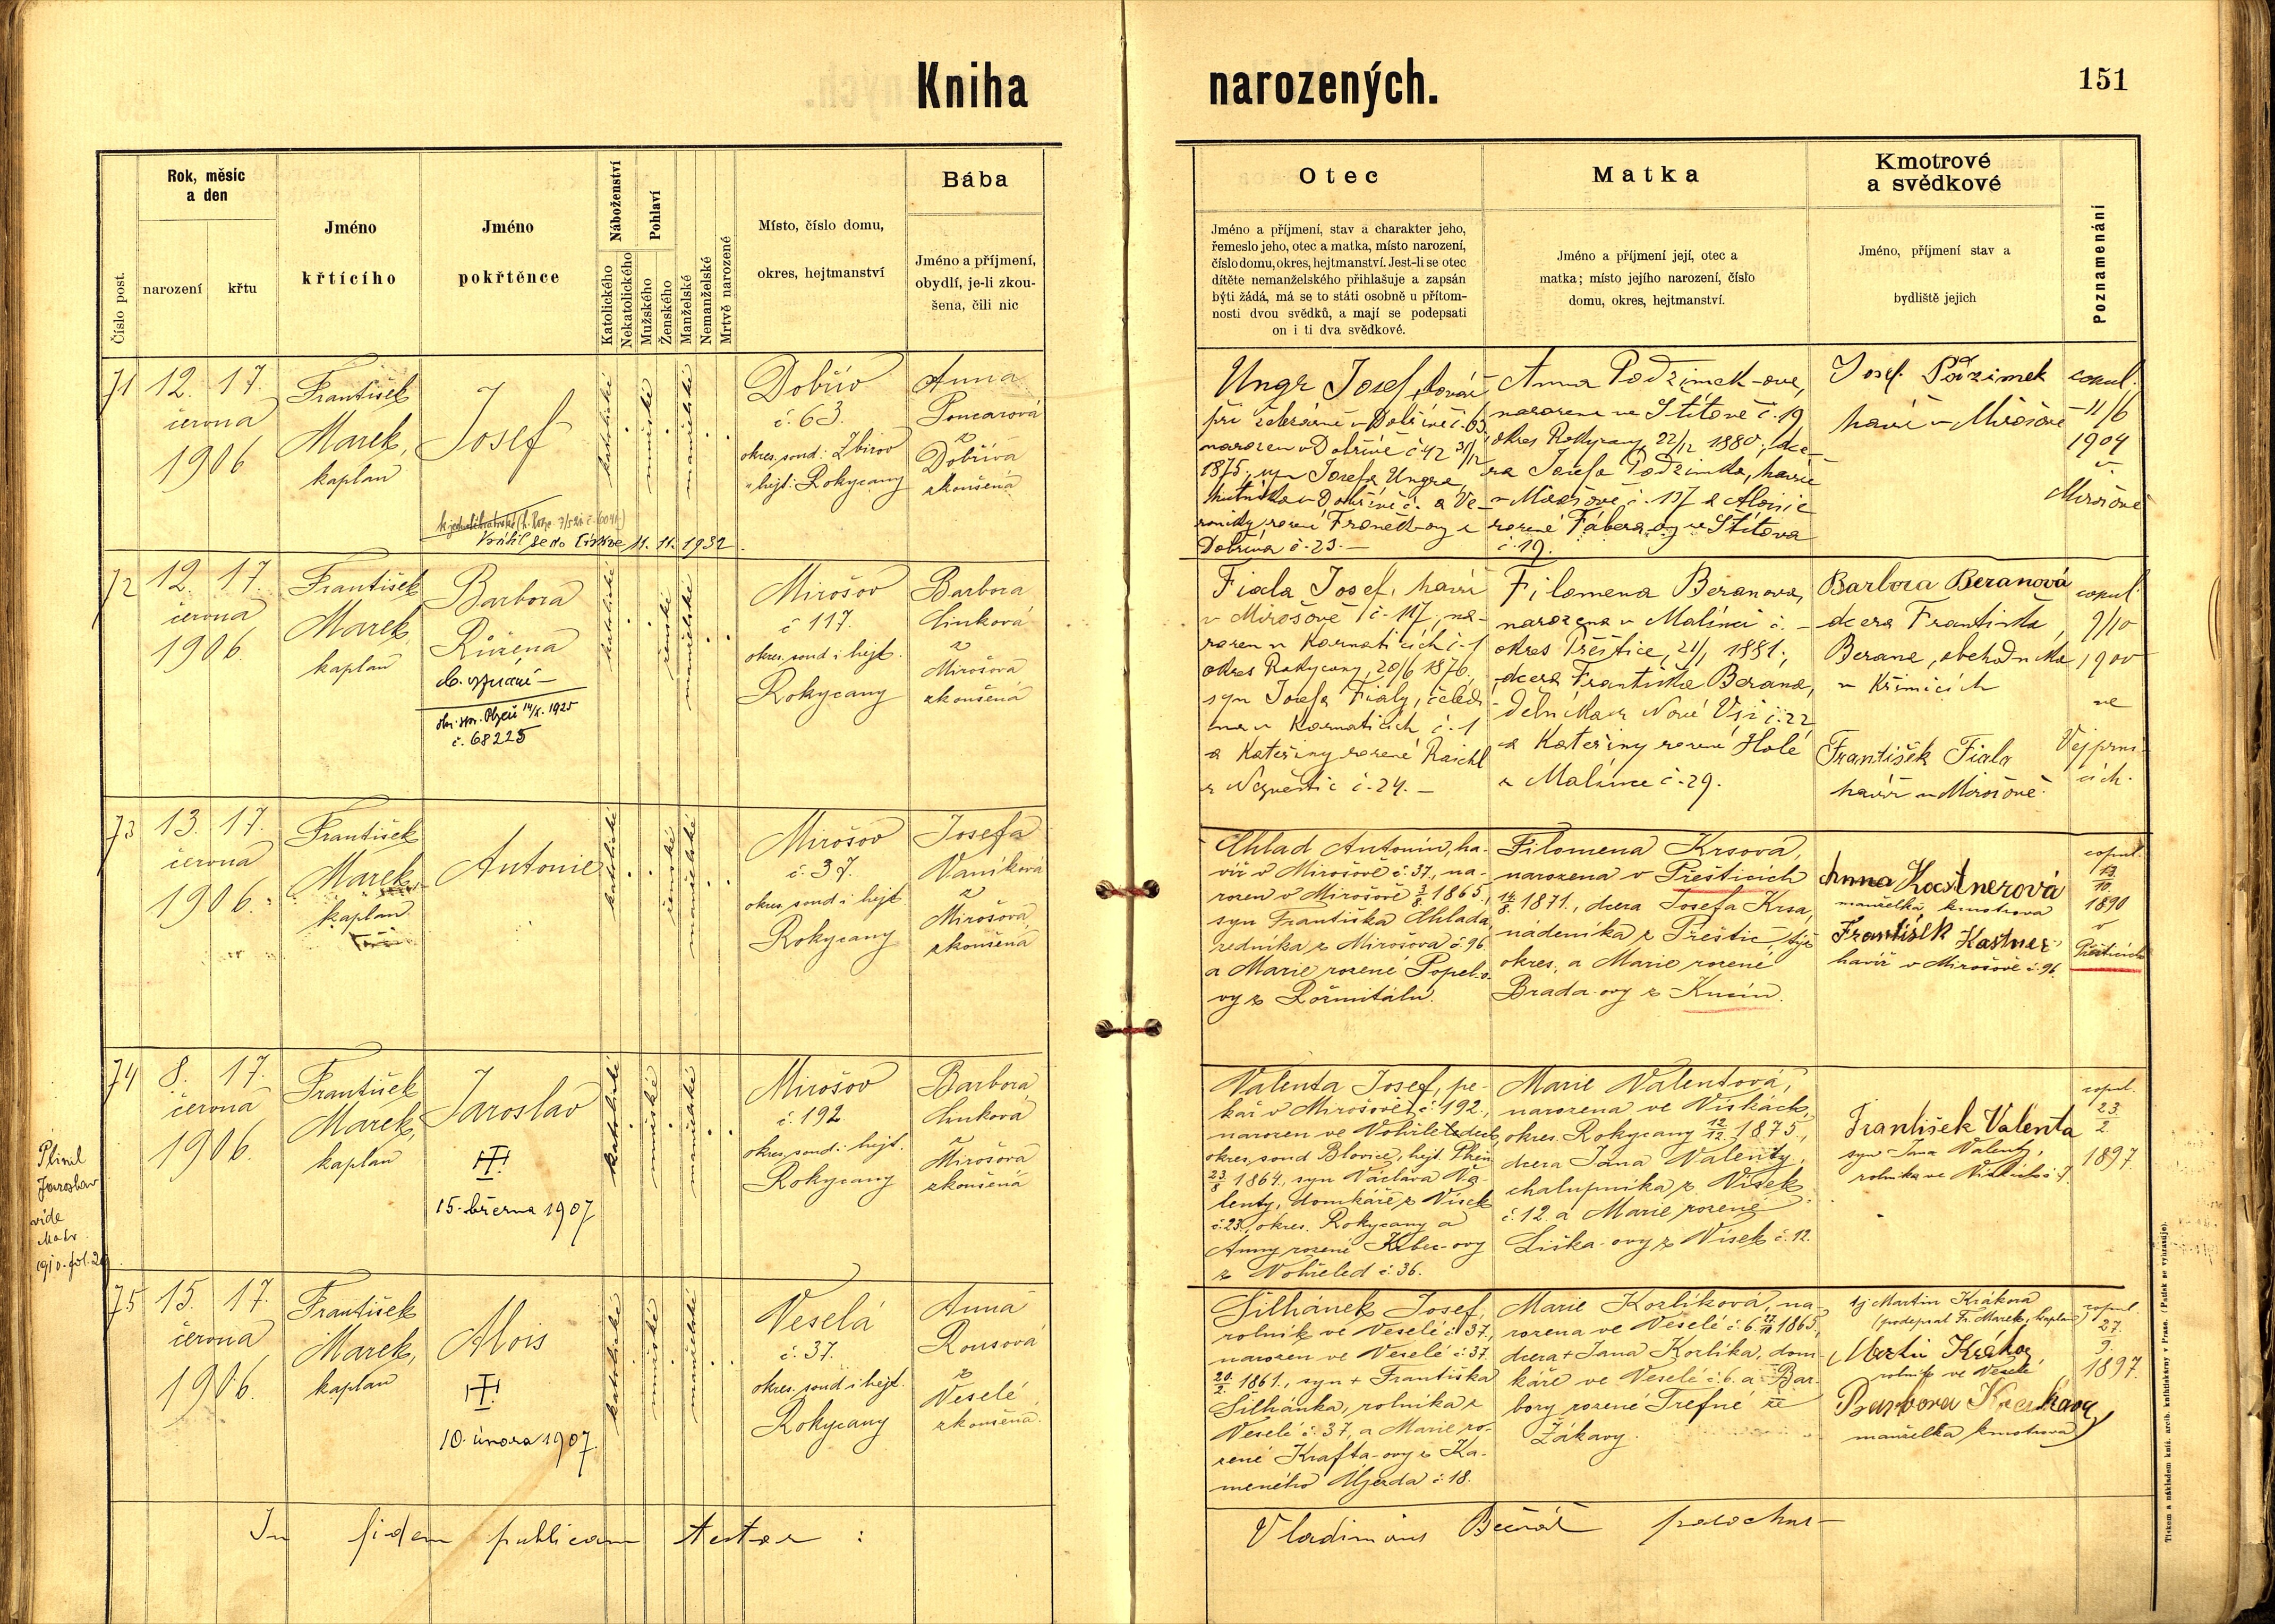 Kniha narozených.
151
Číslo post.
Rok, měsíc
a den
narození
křtu
Jméno
křtícího
Jméno
pokřtěnce
Náboženství
Katolického
Nekatolického
Pohlaví
Mužského
Ženského
Manželské
Nemanželské
Mrtvě narozené
Místo, číslo domu,
okres, hejtmanství
Bába
Jméno a příjmení,
obydlí, je-li zkou-
šena, čili nic
Otec
Jméno a příjmení, stav a charakter jeho,
řemeslo jeho, otec a matka, místo narození,
číslo domu, okres, hejtmanství. Jest-li se otec
dítěte nemanželského přihlašuje a zapsán
býti žádá, má se to státi osobně u přítom-
nosti dvou svědků, a mají se podepsati
on i ti dva svědkové.
Matka
Jméno a příjmení její, otec a
matka; místo jejího narození, číslo
domu, okres, hejtmanství.
Kmotrové
a svědkové
Jméno, příjmení stav a
bydliště jejich
Poznamenání
71
12. 17.
června
1906
František
Marek,
kaplan
Josef
Vrátil se do církve 11. 11. 1932
katolické
mužské
manželské
Dobřív
č. 63.
okres. soud: Zbirov
hejt: Rokycany
Anna
Poncarová
z
Dobříva
zkoušená
Ungr Josef, kovář
narozen v Dobřívě č 42 31/12
1875, syn Josefa Ungra,
Dobříva č. 23. —
Anna Podzimek-ova,
narozena ve Štítově č. 19
okres Rokycany 22/12 1880, dce-
ra Josefa Podzimka, havíře
v Mirošově č. 137 a Aloisie
rozené Fábera-ovy ze Štítova
č. 19.
Josef Podzimek
havíř v Mirošově
copul.
11/6
1904
v
Mirošově
72
12. 17.
června
1906.
František
Marek,
kaplan
Barbora
Růžena
b. vyznání —
14/X. 1925
č. 68225
katolické
ženské
manželské
Mirošov
č 117.
okres. soud i hejt.
Rokycany
Barbora
Linková
z
Mirošova
zkoušená
Fiala Josef, havíř
v Mirošově č. 117, na-
rozen v Kornaticích č. 1
okres Rokycany, 20/6 1876,
syn Josefa Fialy, čeled-
ína v Kornaticích č. 1
a Kateřiny rozené Raichl
z Nezvěstic č. 24. —
Filomena Beranova,
narozena v Malinci č. —
okres Přeštice, 21/1 1881,
dcera Františka Berana,
dělníka z Nové Vsi č. 22
a Kateřiny rozené Holé
z Malince č. 29.
Barbora Beranová
dcera Františka
Berana, obchodníka
v Křimicích
František Fiala
havíř v Mirošově.
copul.
9/10
1900
ve
Vejprni-
cích.
73
13. 17.
června
1906.
František
Marek,
kaplan
Antonie
katolické
ženské
manželské
Mirošov
č. 37.
okres. soud i hejt.
Rokycany
Josefa
Vaníková
z
Mirošova
zkoušená
Chlad Antonín, ha-
víř v Mirošově č. 37, na-
rozen v Mirošově 3/8 1865,
syn Františka Chlada,
zedníka z Mirošova č. 96
a Marie rozené Popel-o-
vy z Rožmitálu.
Filomena Krsová,
narozena v Přešticích
14/8. 1871., dcera Josefa Krsa,
nádeníka z Přeštic, týž
okres, a Marie rozené
Brada-ovy z Kucín.
Anna Kastnerová
manželka kmotrova
František Kastner
havíř v Mirošově č. 96.
copul.
13
10.
1890
v
Přešticích
74
8. 17.
června
1906.
František
Marek,
kaplan
Jaroslav
15. března 1907
katolické
mužské
manželské
Mirošov
č. 192
okres. soud i hejt.
Rokycany
Barbora
Linková
z
Mirošova
zkoušená
Valenta Josef, pe-
kař v Mirošově č. 192,
okres. soud Blovice, hejt. Plzeň
23/8 1864, syn Václava Va-
lenty, domkáře z Vísek
č. 23, okres. Rokycany a
z Vohřeled č. 36.
Marie Valentová,
narozena ve Vískách,
okres. Rokycany 12/12 1875,
dcera Jana Valenty,
chalupníka z Vísek
č. 12 a Marie rozené
Liška-ovy z Vísek č. 12.
František Valenta
syn Jana Valenty,
rolníka ve Vískách č. 7.
copul.
23.
2.
1897.
Jaroslav
vide
Matr.
75
15. 17.
června
1906.
František
Marek,
kaplan
Alois
10. února 1907.
katolické
mužské
manželské
Veselá
č. 37.
okres. soud i hejt.
Rokycany
Anna
Rousová
z
Veselé
zkoušená.
Šilhánek Josef,
rolník ve Veselé č. 37,
narozen ve Veselé č. 37.
20/2. 1861., syn + Františka
Šilhánka, rolníka z
Veselé č. 37, a Marie ro-
zené Krafta-ovy z Ka-
menného Újezda č. 18.
Marie Kozlíková, na-
rozena ve Veselé č. 6 1865,
dcera + Jana Kozlíka, dom-
káře ve Veselé č. 6. a Bar-
bory rozené Trefné ze
Žákavy.
tj Martin Krákora
(podepsal Fr. Marek, kaplan)
rolník ve Veselé
manželka kmotrova
copul.
27.
9.
1897.
In fidem publicam testor :
Vladimírus parochus
Tiskem a nákladem kníž. arcib. knihtiskárny v Praze. (Patisk se vyhrazuje).